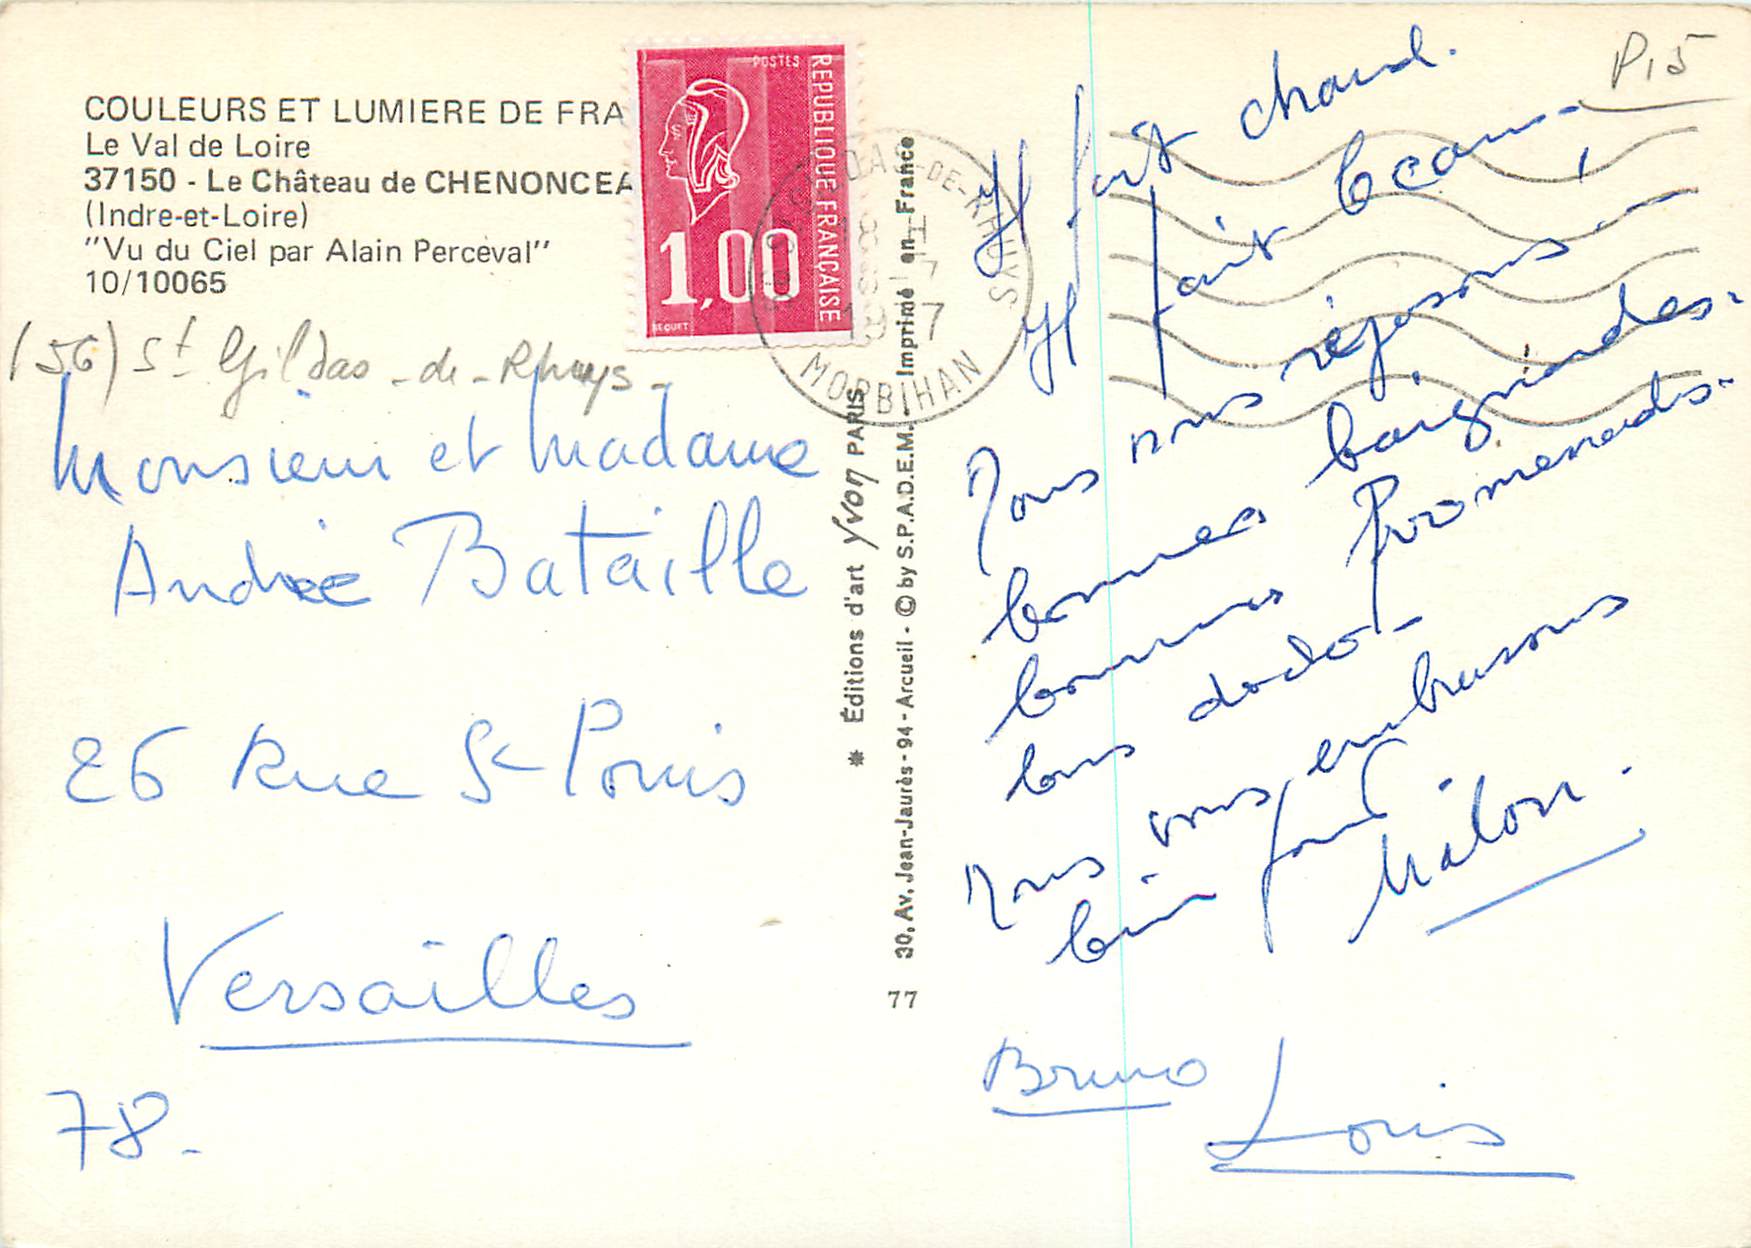 COULEURS ET LUMIERE DE FRA
Le Val de Loire
37150 - Le Château de CHENONCEA
(Indre-et-Loire)
"Vu du Ciel par Alain Perceval"
10/10065
POSTES
REPUBLIQUE FRANÇAISE
1,00
BEQUET
DE-RHUYS
MORBIHAN
(56) St Gildas-de-Rhuys-
Monsieur et Madame
André Bataille
26 Rue St Louis
Versailles
78-
* Éditions d'art Yvon PARIS
30, Av. Jean-Jaurès - 94 - Arcueil - © by S.P.A.D.E.M. - Imprimé en France
77
P,5
Il fait chaud.
Il fait beau -
Nous nous reposons -
bonnes baignades.
bonnes promenades.
bons dodo -
Nous vous embrassons
bien fort
Bruno
Louis